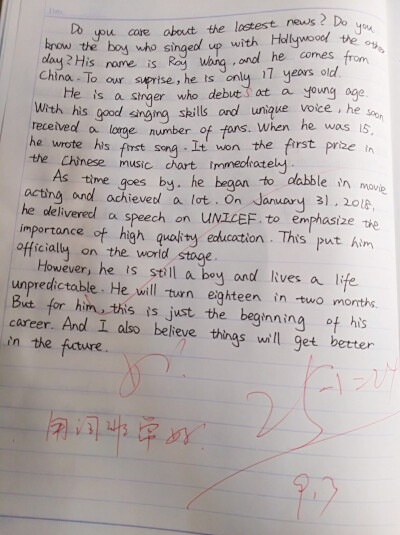 Do you care about the lastest news? Do you
know the boy who singed up with Hollywood the other
day? His name is Roy Wang, and he comes from
China. To our suprise, he is only 17 years old.
He is a singer who debuts at a young age.
With his good singing skills and unique voice, he soon
received a large number of fans. When he was 15,
he wrote his first song. It won the first prize in
the Chinese music chart immediately.
As time goes by, he began to dabble in movie
acting and achieved a lot. On January 31, 2018,
he delivered a speech on UNICEF. to emphasize the
importance of high quality education. This put him
officially on the world stage.
However, he is still a boy and lives a life
unpredictable. He will turn eighteen in two months.
But for him, this is just the beginning of his
career. And I also believe things will get better
in the future.
?
25-1=24
用词
9.3